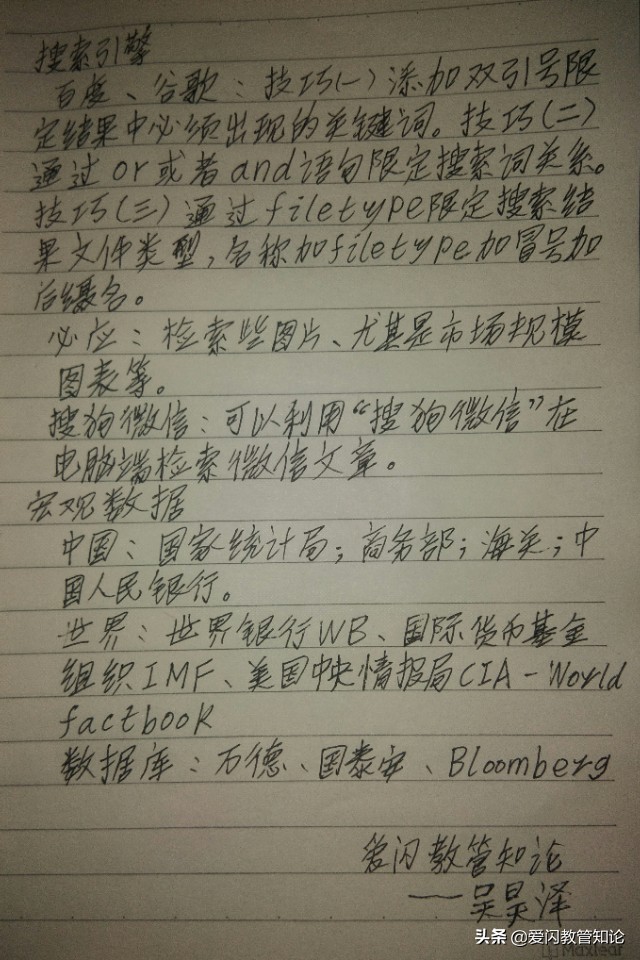 搜索引擎
百度、谷歌：技巧(一)添加双引号限
定结果中必须出现的关键词。技巧(二)
通过or或者and语句限定搜索词关系。
技巧(三)通过filetype限定搜索结
果文件类型,名称加filetype加冒号加
后缀名。
必应：检索些图片、尤其是市场规模
图表等。
搜狗微信：可以利用“搜狗微信”在
电脑端检索微信文章。
宏观数据
中国：国家统计局；商务部；海关；中
国人民银行。
世界：世界银行WB、国际货币基金
组织IMF、美国中央情报局CIA-World
factbook
数据库：万德、国泰安、Bloomberg
爱闪教管知论
——吴昊泽
头条 @爱闪教管知论